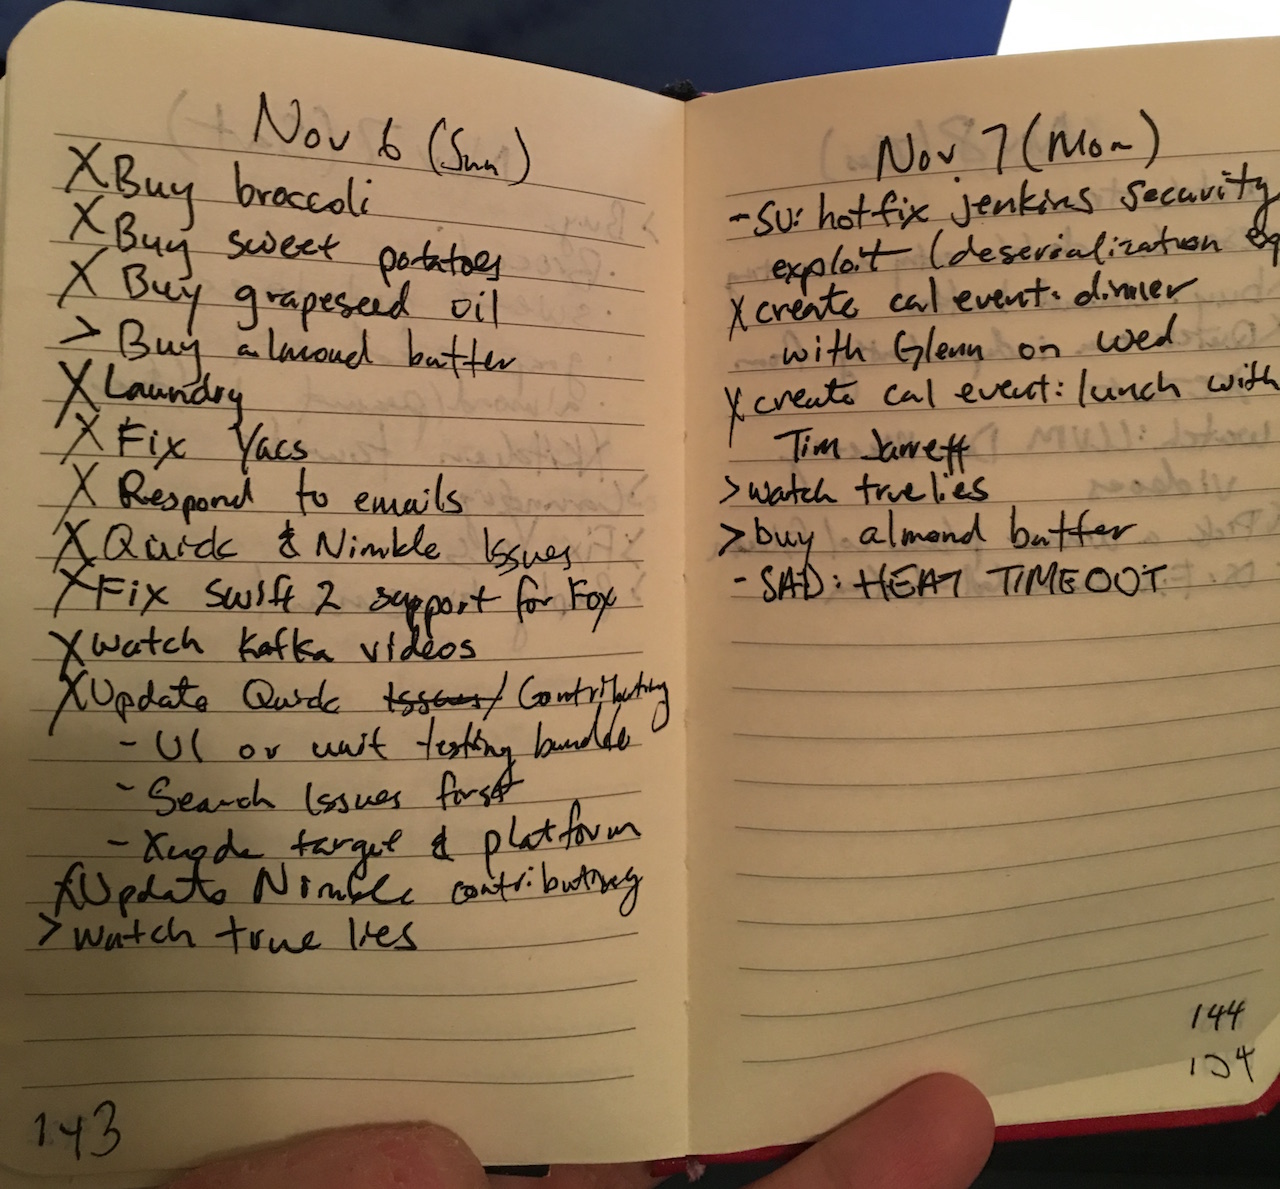 Nov 6 (Sun)
X Buy broccoli
X Buy sweet potatoes
X Buy grapeseed oil
> Buy almond butter
X Laundry
X Fix Yacs
X Respond to emails
X Quick & Nimble Issues
X Fix Swift 2 support for Fox
X watch Kafka videos
X Update Quick Issues / Contributing
- UI or unit testing bundle
- Search Issues forst
- Xcode target & platform
X Update Nimble contributing
> watch true lies
143
Nov 7 (Mon)
- SU: hotfix jenkins security
exploit (deserialization
X create cal event: dinner
with Glenn on Wed
X create cal event: lunch with
Tim Jarrett
> watch true lies
> buy almond butter
- SAD: HEAT TIMEOUT
144